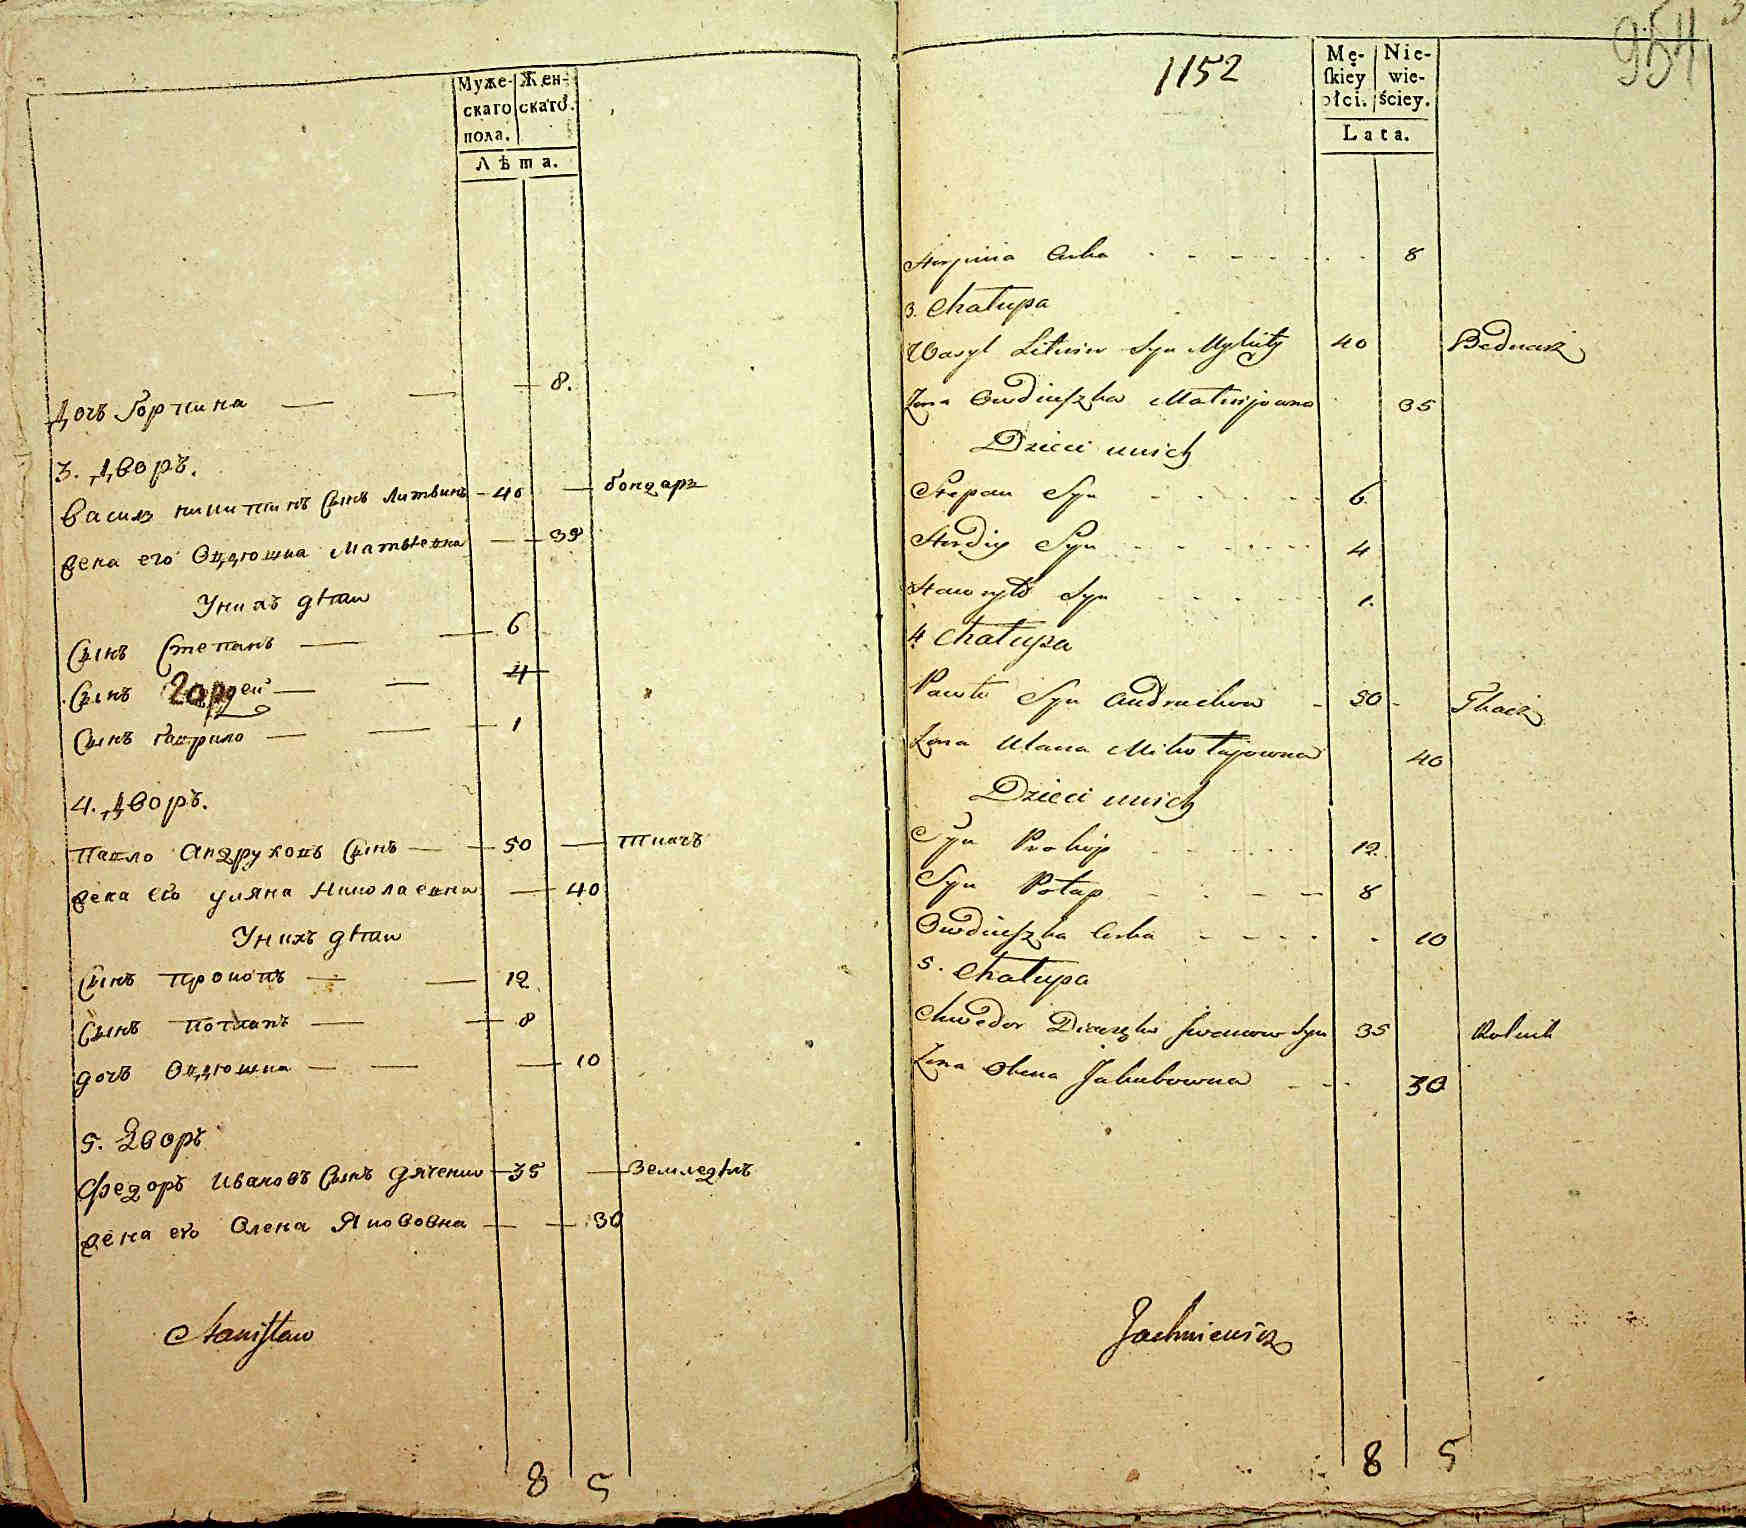 Муже- Жен-
скаго скаго.
пола.
Лѣта.
Дочь Горпина 8.
3. Дворъ.
Василь никитинъ Сынъ Литвинъ 40 бондарь
жена его Овдюшка Матвѣевна 35
У нихъ дѣти
Сынъ Степанъ 6
Сынъ Гордей 4
Сынъ Гаврило 1
4. Дворъ.
Павло Андруховъ Сынъ 50 ткачь
жена его уляна Николаевна 40
У нихъ дѣти
Сынъ прокопъ 12
Сынъ потапъ 8
дочь Овдюшка 10
5. Дворъ
Федоръ Ивановъ Сынъ дяченко 35 Земледѣлъ
жена его Олена Якововна 30
Stanisław
8 5
954
1152
Mę- Nie-
skiey wie-
płci. ściey.
Lata.
Horpina Curka 8
3. Chałupa
Wasyl Litwin Syn Mykity 40 Bednarz
Żona Owdiuszka Matwijowna 35
Dzieci unich
Stepan Syn 6
Hordiy Syn 4
Hawryło Syn 1.
4 Chałupa
Pawło Syn Andruchow 50 Tkacz
Żona Ulana Mikołajowna 40
Dzieci unich
Syn Prokip 12
Syn Potap 8
Owdiuszka Curka 10
5. Chałupa
Chwedor Diaczęko Jwanow Syn 35 Rolnik
Żona Olena Jakubowna 30
Jachniewicz
8 5